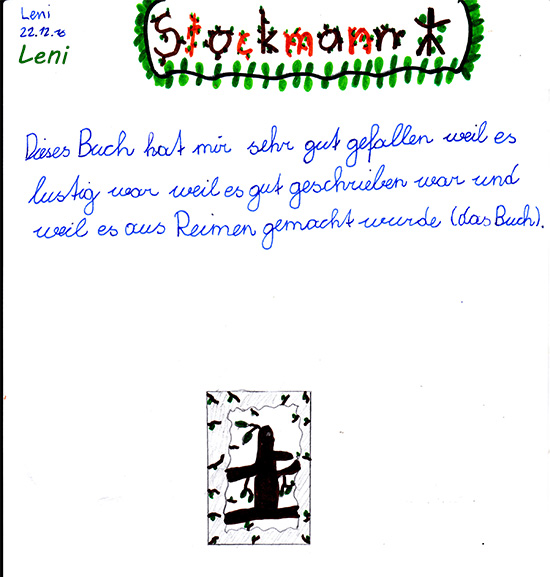 Leni
22.12.
Leni
Stockmann
Dieses Buch hat mir sehr gut gefallen weil es
lustig war weil es gut geschrieben war und
weil es aus Reimen gemacht wurde (das Buch).